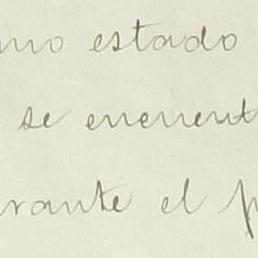 mo estado
se encuent
rante el p